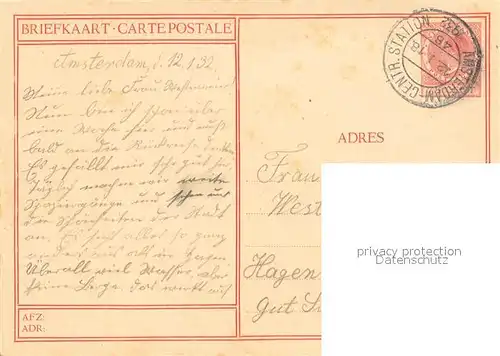 BRIEFKAART · CARTE POSTALE
Amsterdam, d. 12.1.32.
Meine liebe Frau Westermann!
Nun bin ich schon über
eine Woche hier und muß
bald an die Rückreise denken
Es gefällt mir sehr gut hier
Täglich machen wir weite
Spaziergänge und schauen uns
die Schönheiten der Stadt
an. Es ist alles so ganz
anders als in Hagen.
Überall viel Wasser, aber
keine Berge. das
AFZ:
ADR:
AMSTERDAM-CENTR. STATION
ADRES
Frau
West
Hagen
gut
privacy protection
Datenschutz